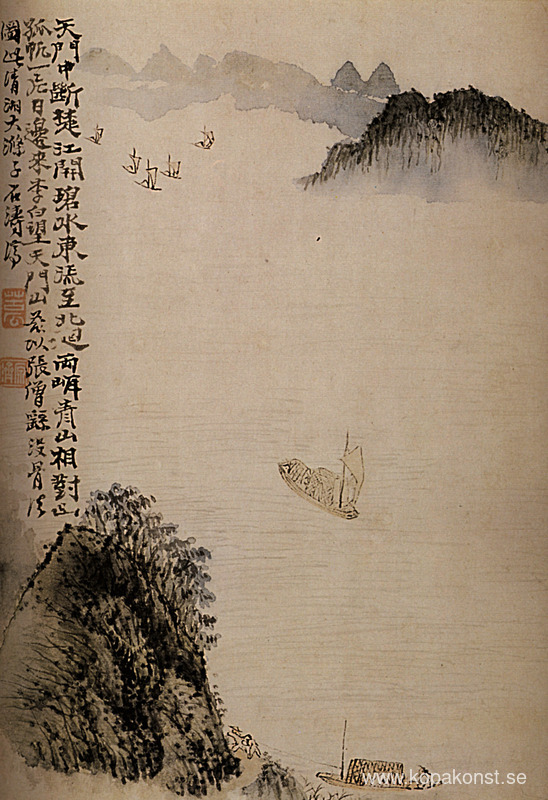 天門中斷楚江開碧水東流至北迴兩岸青山相對出
孤帆一片日邊來李白望天門山茲以張僧繇沒骨法
圖此清湘大滌子石濤濟
www.kopakonst.se